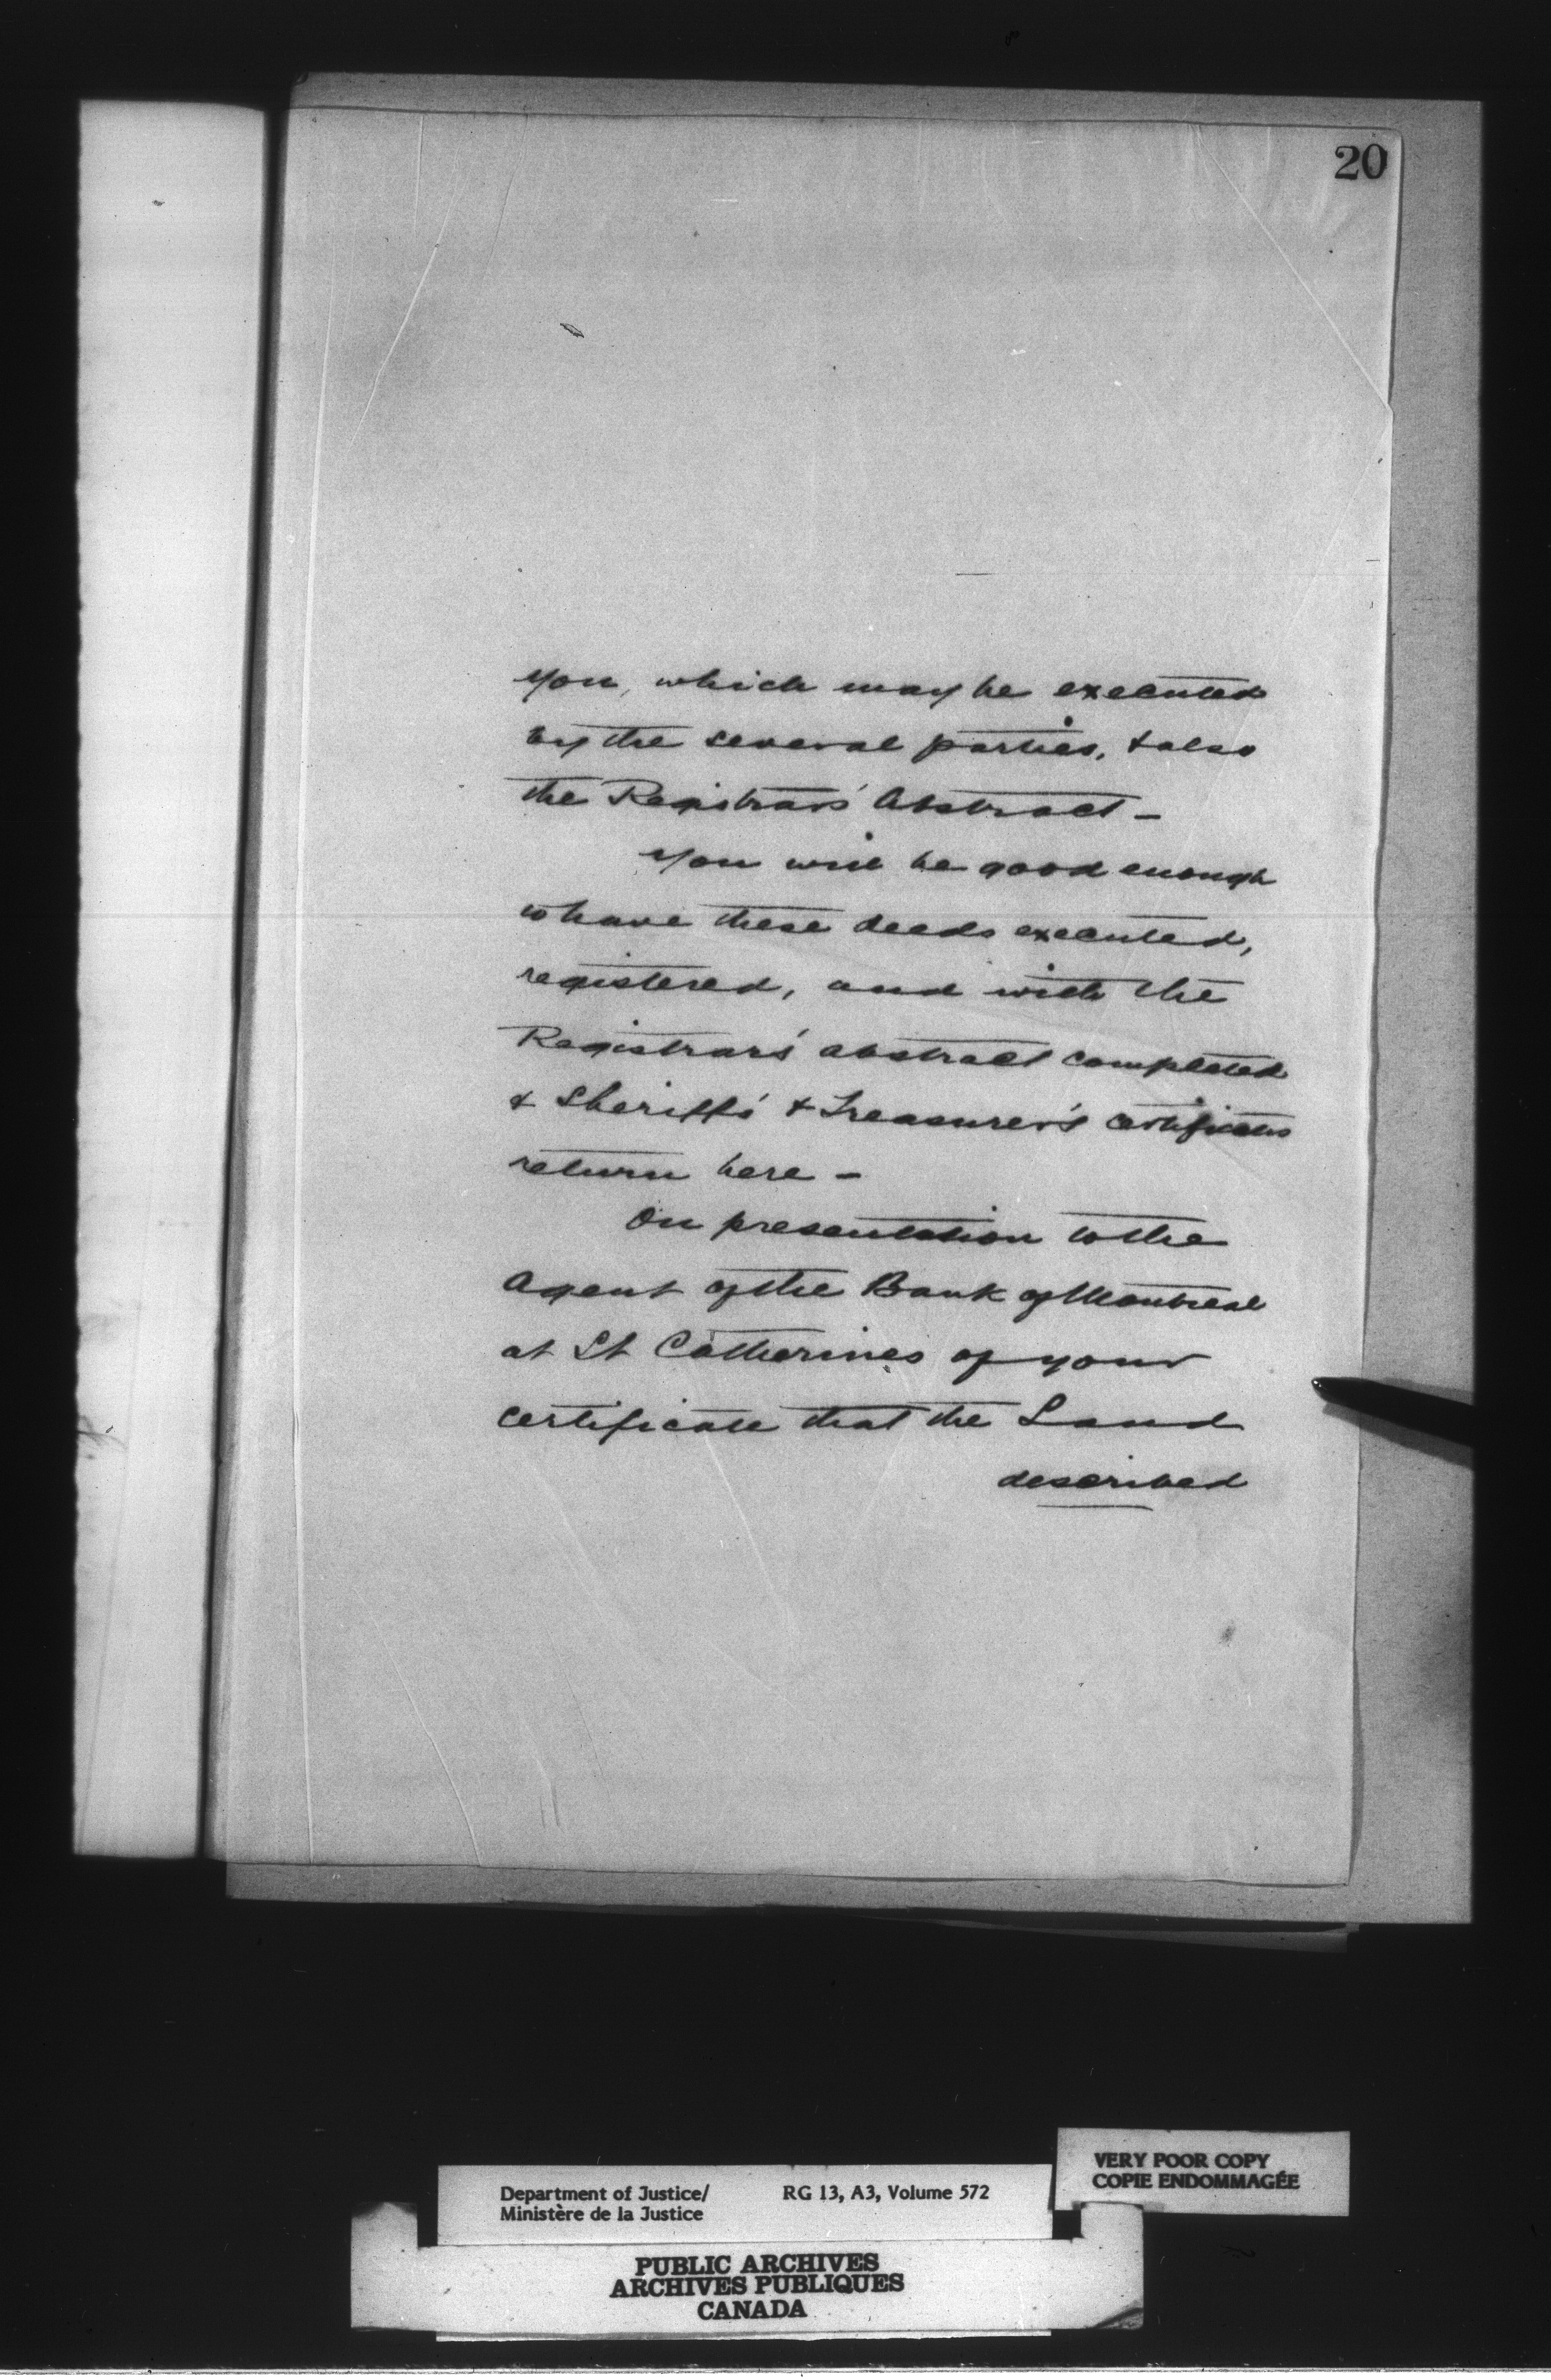 20
you, which may be executed
by the several parties, & also
the Registrar's Abstract –
You will be good enough
to have these deeds executed,
registered, and with the
Registrar's abstract completed
& Sheriff's & Treasurer's certificates
return here –
On presentation to the
Agent of the Bank of Montreal
at St Catherines of your
certificate that the Land
described
VERY POOR COPY
COPIE ENDOMMAGÉE
Department of Justice/ RG 13, A3, Volume 572
Ministère de la Justice
PUBLIC ARCHIVES
ARCHIVES PUBLIQUES
CANADA